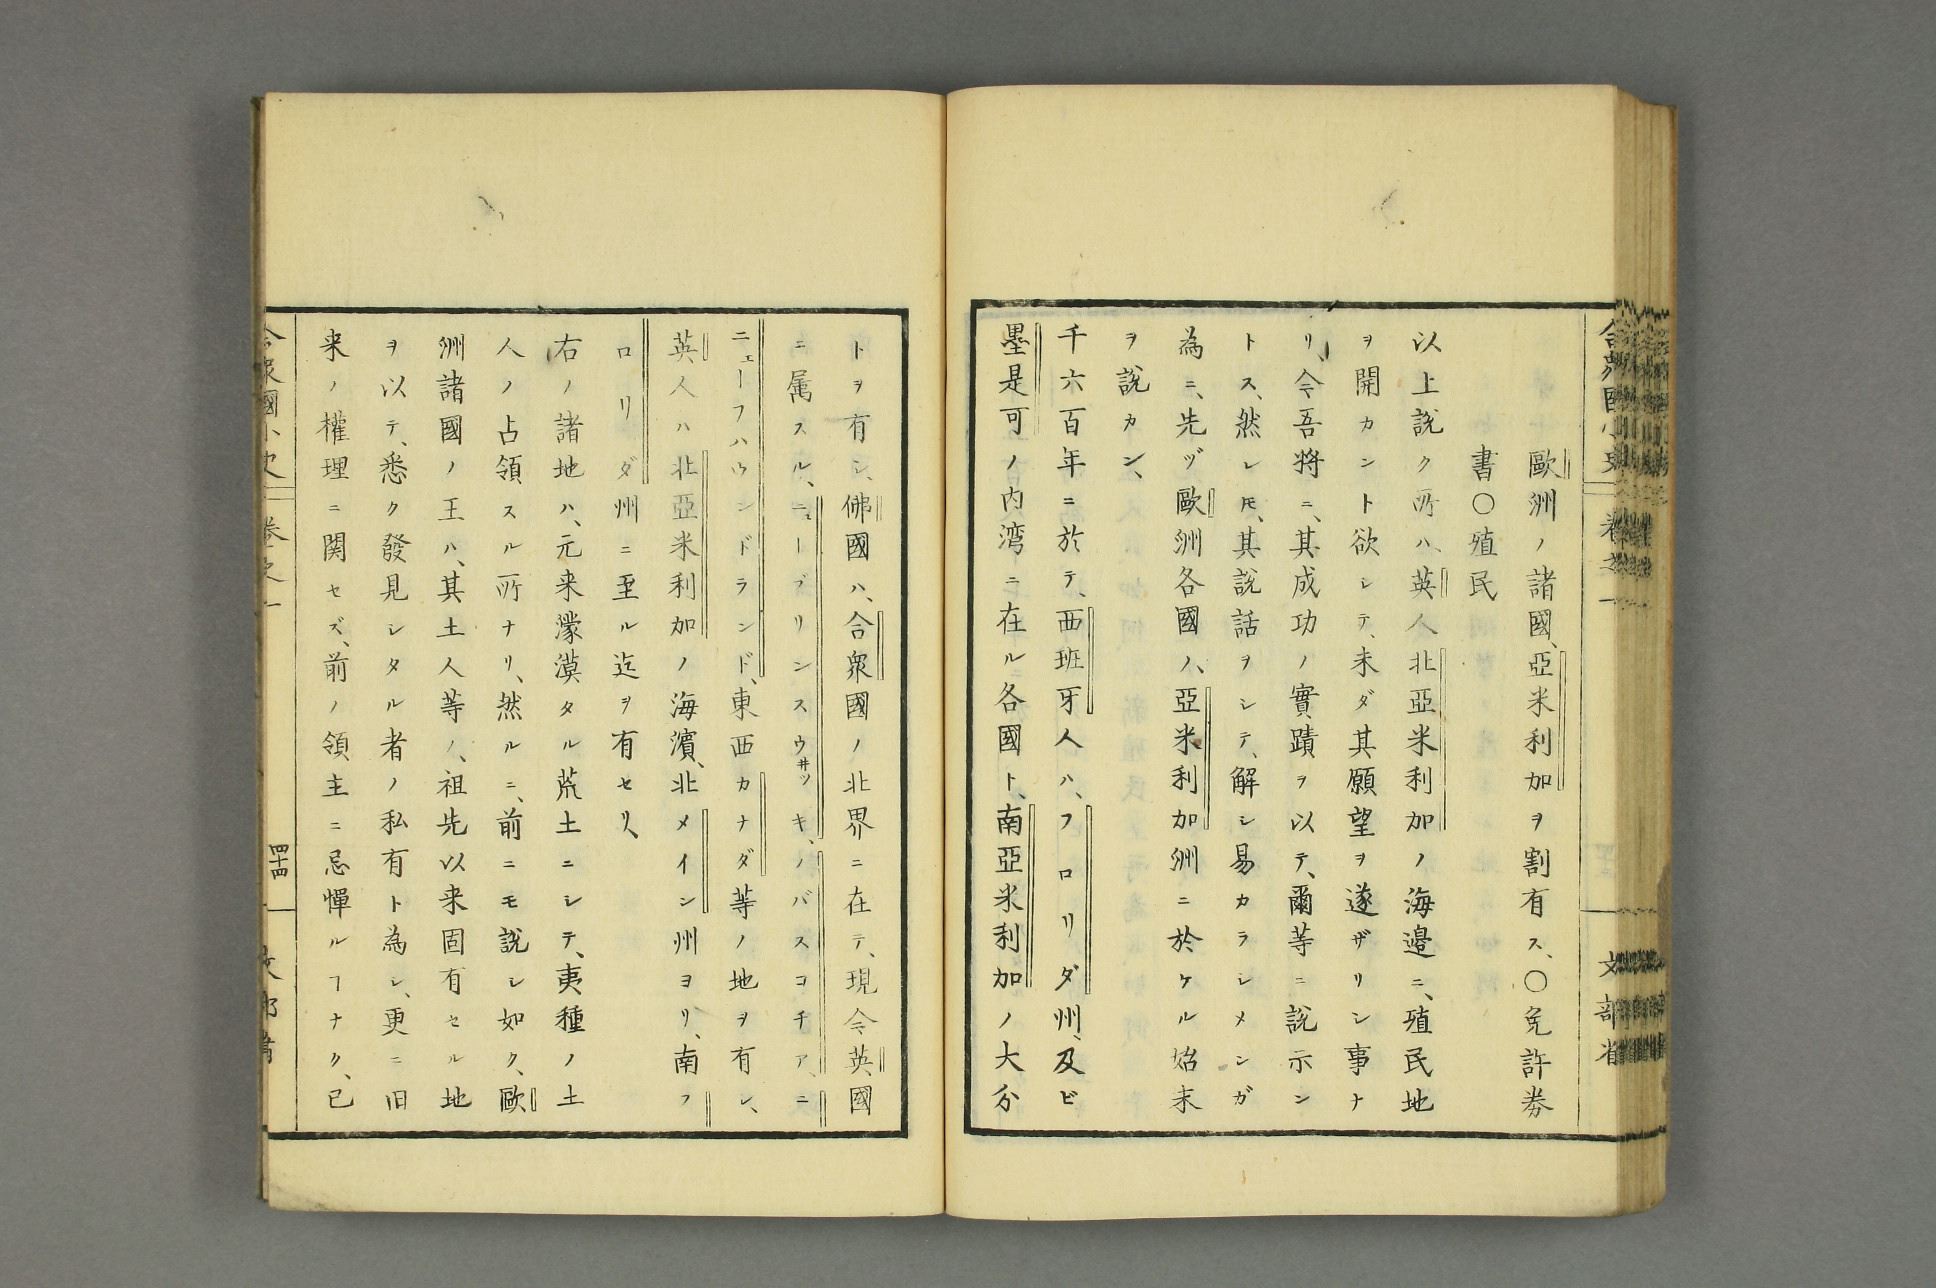 歐洲ノ諸國、亞米利加ヲ割有ス、〇免許券
書〇殖民
以上説ク所ハ、英人北亞米利加ノ海邉ニ、殖民地
ヲ開カント欲シテ、未ダ其願望ヲ遂ザリシ事ナ
リ、今吾將ニ、其成功ノ實蹟ヲ以テ、爾等ニ説示シ
トス、然レ𪜈、其説話ヲシテ、解シ易カラシメンガ
為ニ、先ヅ歐洲各國ノ、亞米利加洲ニ於ケル始末
ヲ説カン、
千六百年ニ於テ、西班牙人ハ、フロリダ州、及ビ
墨是可ノ内湾ニ在ル各國ト、南亞米利加ノ大分
トヲ有シ、佛國ハ、合衆國ノ北界ニ在テ、現今英國
ニ属スル、ニューブリンスウ井ッキ、ノバスコチア、ニ
ニェーフハウンドランド、東西カナダ等ノ地ヲ有シ、
英人ハ北亞米利加ノ海濱、北メイン州ヨリ、南フ
ロリダ州ニ至ル迄ヲ有セリ、
右ノ諸地ハ、元来濛漠タル荒土ニシテ、夷種ノ土
人ノ占領スル所ナリ、然ルニ、前ニモ説シ如ク、歐
洲諸國ノ王ハ、其土人等ノ、祖先以来固有セル地
ヲ以テ、悉ク發見シタル者ノ私有ト為シ、更ニ旧
来ノ權理ニ関セズ、前ノ領主ニ忌憚ルヿナク、已
合衆國小史 巻之一 文部省
合衆國小史 巻之一 四十四 文部省